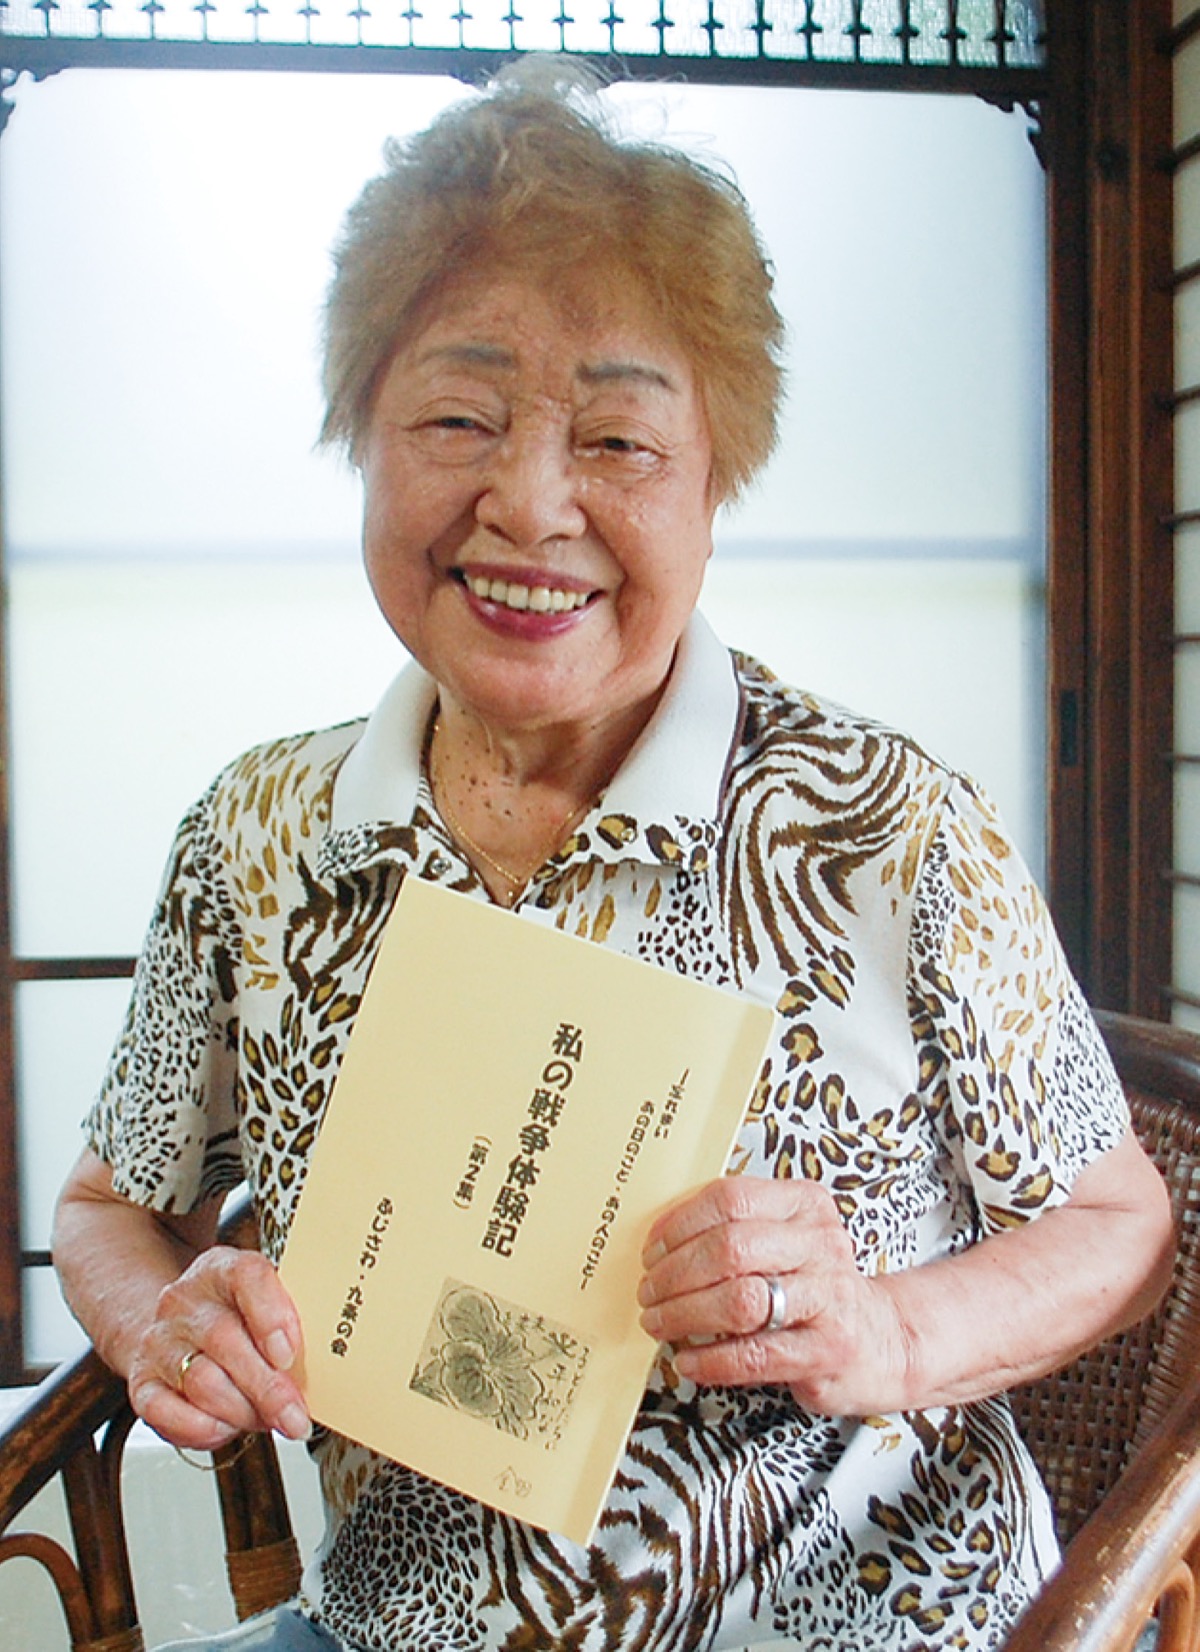 ―至れまい
あの日のこと・あの人のこと―
私の戦争体験記
(第2集)
ふじさわ・九条の会